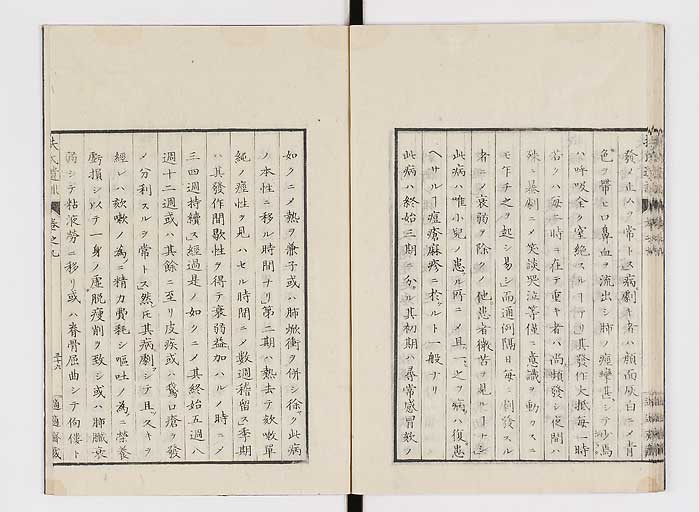 發ノ止ムヲ常トス病劇キ者ハ顔面灰白ニメ青
色ヲ帶ヒ口鼻血ヲ流出シ肺ノ痙攣甚シテ少焉
ハ呼吸全ク窒絶スルヿアリ其發作大抵每一時
若クハ每二時ニ在テ重キ者ハ尚頻發シ夜間ハ
殊ニ暴劇ニメ笑談哭泣等僅ニ意識ヲ動カスニ
モ乍チ之ヲ起シ易シ而通例隔日每ニ劇發スル
者ニメ衰弱ヲ除クノ他患者懶苦ヲ見ルヿナシ
此病ハ唯小兒ノ患ル所ニメ且一之ヲ病ハ復患
ヘサルヿ痘瘡麻疹ニ於ルト一般ナリ
此病ハ終始三期ニ分ル其初期ハ尋常感冒欬ノ
如クニメ熱ヲ兼子或ハ肺焮衝ヲ併シ徐ク此病
ノ本性ニ移ル時間ナリ第二期ハ熱去テ欬嗽單
純ノ痙性ヲ見ハセル時間ニメ數週稽留ス季期
ハ其發作間歇性ヲ得テ衰弱益加ハルノ時ニメ
三四週持續ス經過是ノ如クニメ其終始五週八
週十二週或ハ其餘ニ至リ皮疾或ハ鵞口瘡ヲ發
メ分利スルヲ常トス然𪜈其病劇シテ且スキヲ
經レハ欬嗽ノ為ニ精力費耗シ嘔吐ノ為ニ營養
虧損シ以テ一身ノ虛脱瘦削ヲ致シ或ハ肺臟衰
弱シテ粘液勞ニ移リ或ハ脊骨屈曲シテ佝僂ト
扶氏遺訓 卷之九 三十六 適適齋藏